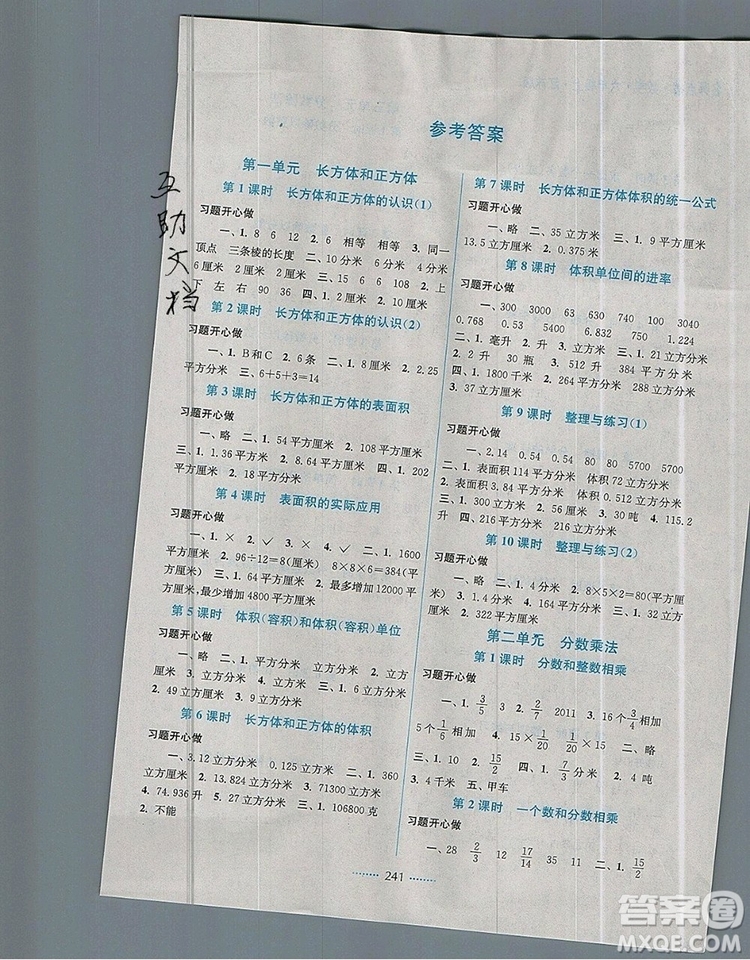 参考答案
互助文档
第一单元 长方体和正方体
第1课时 长方体和正方体的认识(1)
习题开心做
一、1. 8 6 12 2. 6 相等 相等 3. 同一
顶点 三条棱的长度 二、10平方分米 6分米 4分米
6厘米 5厘米 5厘米 三、15 6 108 2. 上
下 左 右 90 36 四、1. 2厘米 2. 10厘米
第2课时 长方体和正方体的认识(2)
习题开心做
一、1. B和C 2. 6条 二、1. 8厘米 2. 2.25
平方分米 3. 6+5+3=14
第3课时 长方体和正方体的表面积
习题开心做
一、略 二、1. 54平方厘米 2. 108平方厘米
三、1. 36平方厘米 2. 8.64平方厘米 四、1. 54平方
厘米 2. 18平方分米
第4课时 表面积的实际应用
习题开心做
一、1. × 2. ✓ 3. × 4. ✓ 二、1. 1600
平方厘米 2. 96÷12=8(厘米) 8×8=64(平方厘米)
8×8×6=384(平方厘米) 三、1. 64平方分米
2. 最多增加12000平方厘米,最少增加4800平方厘米
第5课时 体积(容积)和体积(容积)单位
习题开心做
一、略 二、1. 平方分米 立方分米 立方
厘米 米 四、1. 立方厘米 平方分米 三、1. 5立方分米
2. 49立方厘米 3. 9立方厘米
第6课时 长方体和正方体的体积
习题开心做
一、3.12立方分米 0.125立方米 二、1. 360
立方厘米 2. 13.824立方分米 3. 71300立方分米
4. 74.936升 5. 27立方分米 三、1. 106800克
2. 不能
第7课时 长方体和正方体体积的统一公式
习题开心做
一、略 二、35立方分米 三、1. 9平方厘米
13.5立方厘米 2. 0.375米
第8课时 体积单位间的进率
习题开心做
一、300 3000 63 630 740 100 3040
0.768 0.53 5400 6.832 750 7.324
二、1. 毫升 升 升 升 立方米 三、1. 21厘米
2. 2升 30瓶 3. 512升 4. 216立方厘米
四、1. 1800千米 2. 64平方分米 64立方分米
3. 37立方厘米
第9课时 整理与练习(1)
习题开心做
一、2.14 0.54 0.54 80 80 5700 5700
二、1. 表面积114平方分米 体积72立方分米
2. 表面积3.84平方分米 体积0.512立方分米
三、1. 300立方米 2. 520毫升 3. 90吨 4. 115.2
升 四、216平方分米 216立方分米
第10课时 整理与练习(2)
习题开心做
一、略 二、1. 4分米 2. 8×5×2=80(平方厘
米) 3. 64立方厘米 4. 164平方厘米 三、1. 32立方
厘米 2. 322平方厘米
第二单元 分数乘法
第1课时 分数和整数相乘
习题开心做
一、1. 3/5 3 2. 2/7 2011 3. 16个3/4相加
5个1/6相加 4. 15×1/20 1/20×15 二、略
三、1. 10 2. 15 四、1. 8/5平方分米 2. 4吨
3. 4千米 五、甲车
第2课时 一个数和分数相乘
习题开心做
一、28 2/3 12 17/14 11 二、1. 15/8
241
答案圈
MXQE.COM